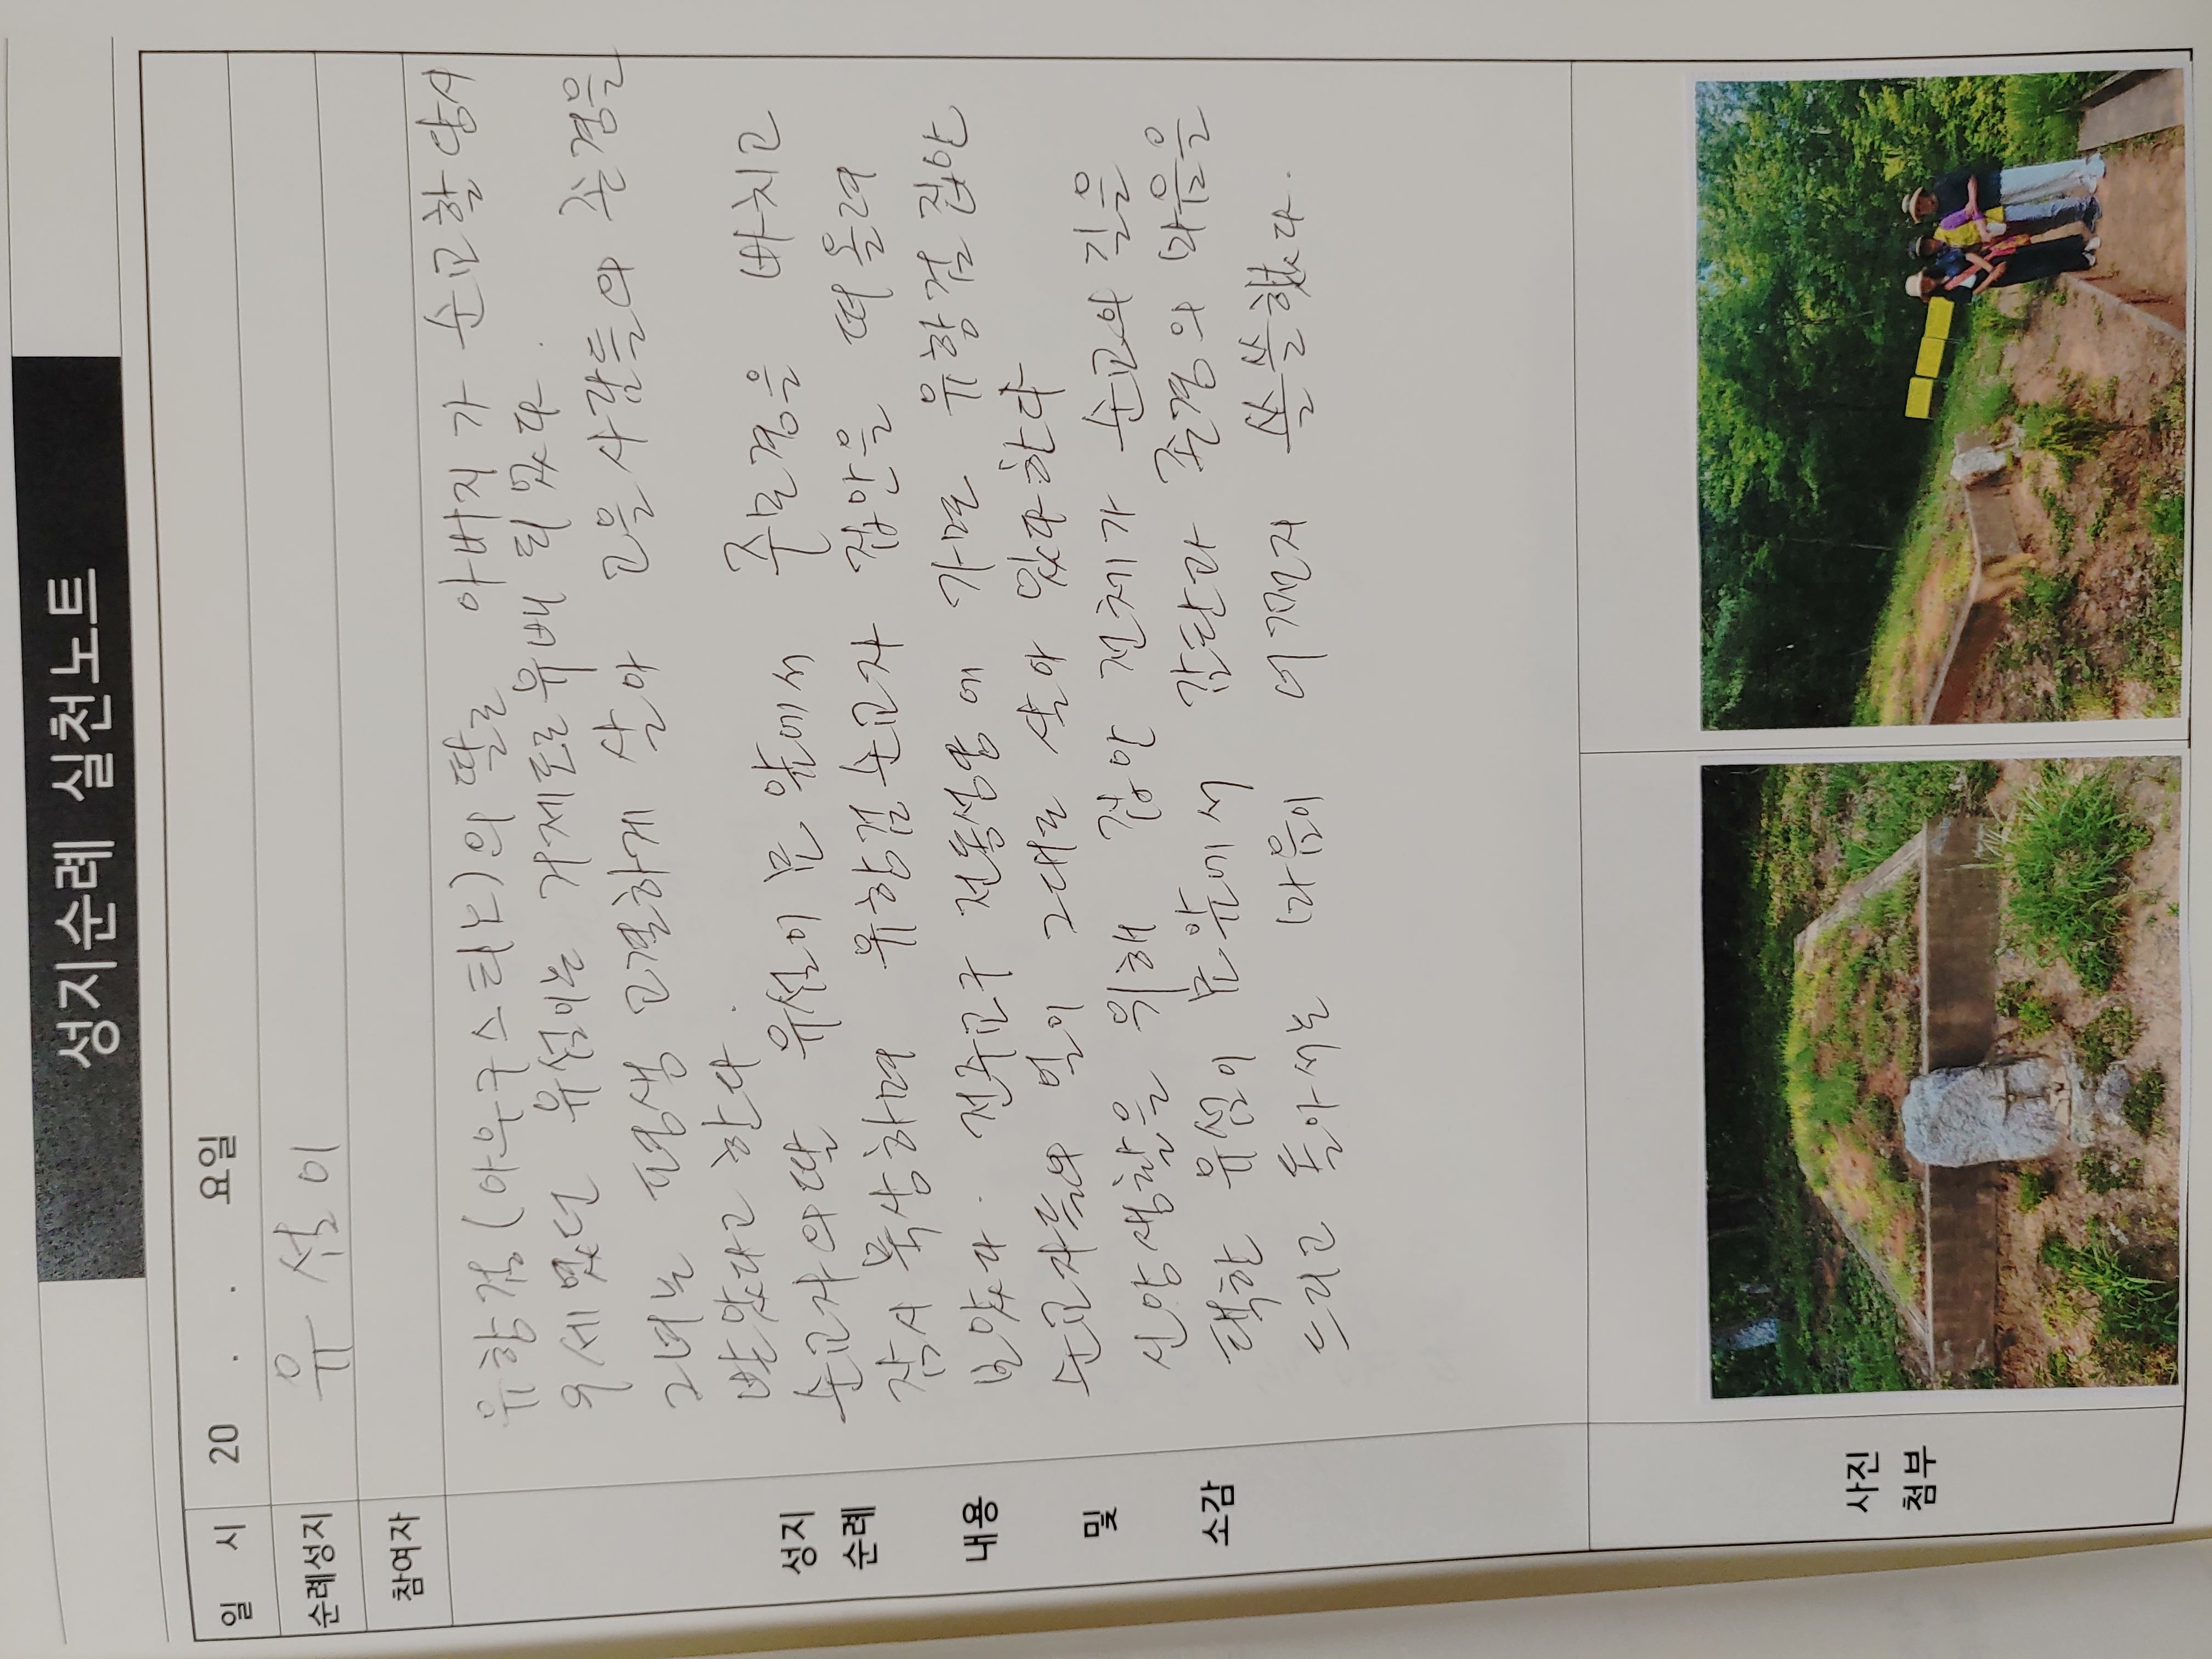 성지순례 실천노트
일 시 20 . . 요일
순례성지 유섬이
참여자
유항검(아우구스티노)의 딸로 아버지가 순교할 당시
9세였던 유섬이는 거제도로 유배 되었다.
그녀는 평생 고결하게 살아 고을 사람들의 존경을
받았다고 한다.
순교자의 딸 유섬이 묘 앞에서 주모경을 바치고
잠시 묵상하며 유항검 순교자 집안을 떠올려
보았다. 전주교구 전동성당에 가면 유항검 집안
순교자들의 얼이 그대로 살아 있다 한다
신앙생활을 위해 집안 전체가 순교의 길을
택한 유섬이 묘앞에서 감탄과 존경의 마음을
드리고 돌아서는 마음이 어쩐지 쓸쓸했다.
성지
순례
내용
및
소감
사진
첨부